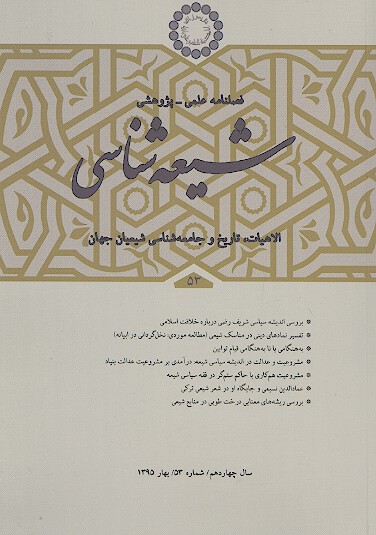 فصلنامه علمی - پژوهشی
شیعه‌شناسی
الاهیات، تاریخ و جامعه‌شناسی شیعیان جهان
۵۳
بررسی اندیشه سیاسی شریف رضی درباره خلافت اسلامی
تفسیر نمادهای دینی در مناسک شیعی (مطالعه موردی: نخل‌گردانی در ابیانه)
به‌هنگامی یا نا به‌هنگامی قیام توابین
مشروعیت و عدالت در اندیشه سیاسی شیعه: درآمدی بر مشروعیت عدالت بنیاد
مشروعیت هم‌کاری با حاکم ستم‌گر در فقه سیاسی شیعه
عمادالدین نسیمی و جایگاه او در شعر شیعی ترکی
بررسی ریشه‌های معنایی درخت طوبی در منابع شیعی
سال چهاردهم/ شماره ۵۳/ بهار ۱۳۹۵